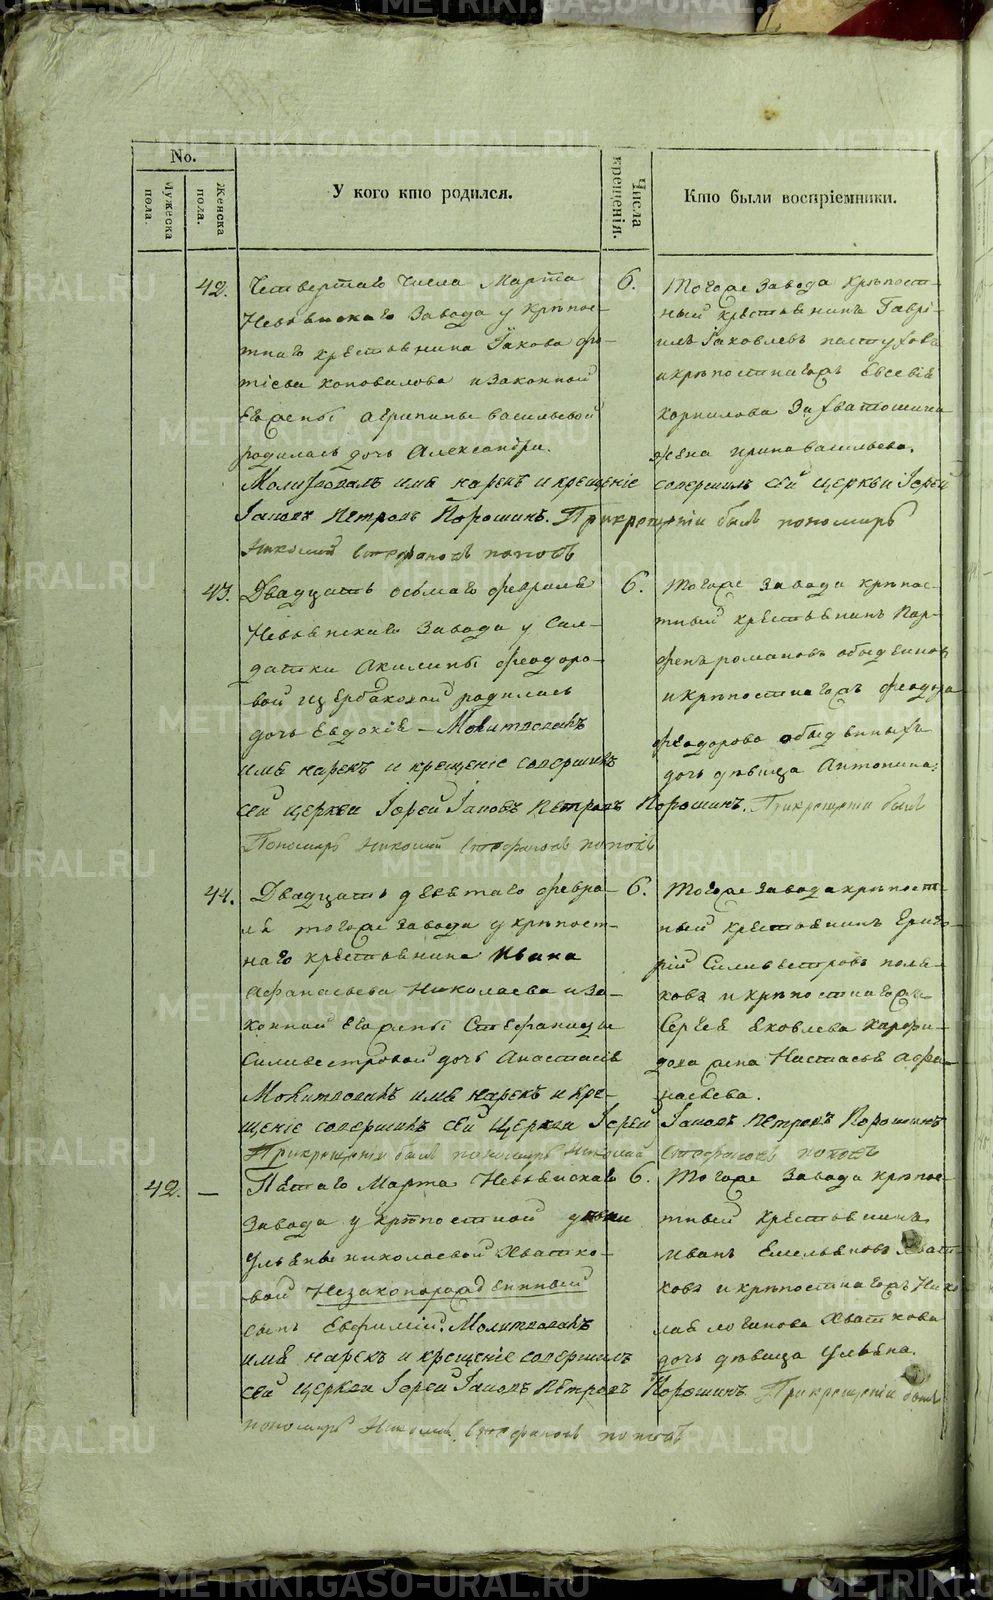 No.
Мужеска пола.
Женска пола.
У кого кто родился.
Числа крещенія.
Кто были воспріемники.
42. Четвертаго числа Марта
Невьянскаго Завода у крѣпос-
тнаго крестьянина Іакова Фо-
тіева Коновалова и законной
Его жены Агрипины Васильевой
родилась дочь Александра.
Молитвовалъ имя нарекъ и крещеніе
Іаковъ Петровъ Порошинъ. При крещеніи былъ пономарь
Николай Стефановъ Поповъ
6. Тогоже Завода крѣпост-
ный крестьянинъ Гаврі-
илъ Іаковлевъ Пастухова
и крѣпостнагожъ Евсевія
Корнилова Захватошина
жена Ирина Васильева.
совершилъ сей церкви Іерей
43. Двадцать осьмаго Февраля
Невьянскаго Завода у Сал-
датки Акилины Феодоро-
вой Щербаковой родилась
дочь Евдокія – Молитвовалъ
имя нарекъ и крещеніе совершилъ
сей церкви Іерей Іаковъ Петровъ Порошинъ. При крещеніи былъ
Пономарь Николай Стефановъ Поповъ
6. Тогоже Завода крѣпос-
тный крестьянинъ Пар-
фенъ Романовъ
и крѣпостнагожъ Феодора
Феодорова
дочь дѣвица Антонина.
44. Двадцать девятаго Февра-
ля тогоже завода у крѣпост-
наго крестьянина Ивана
Афанасьева Николаева и за-
конной Его жены Стефаниды
Силивестровой дочь Анастасія
Молитвовалъ имя нарекъ и кре-
щеніе совершилъ сей церкви Іерей Іаковъ Петровъ Порошинъ
При крещеніи былъ пономарь Николай Стефановъ Поповъ
6. Тогоже завода крѣпост-
ный крестьянинъ Григо-
рій Силивестровъ Поля-
ковъ и крѣпостнагожъ
Сергея Яковлева
жена Настасья Афа-
насьева.
42. — Пятаго Марта Невьянскаго
Завода у крѣпостной дѣвки
Ульяны Николаевой Хватко-
вой Незаконорожденный
сынъ Евфимій. Молитвовалъ
имя нарекъ и крещеніе совершилъ
сей церкви Іерей Іаковъ Петровъ Порошинъ. При крещеніи былъ
пономарь Николай Стефановъ Поповъ
6. Тогоже Завода крѣпос-
тный крестьянинъ
Иванъ Емельяновъ Хват-
ковъ и крѣпостнагожъ Нико-
лая Логинова Хваткова
дочь дѣвица Ульяна.
METRIKI.GASO-URAL.RU